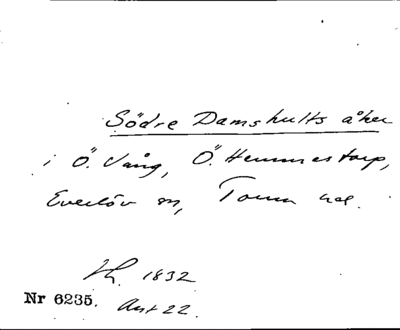 Södre Damshults åker
i Ö. Vång, Ö. Hemmestorp,
Everlöv sn, Torna hd.
1832
Nr 6235. Akt 22.